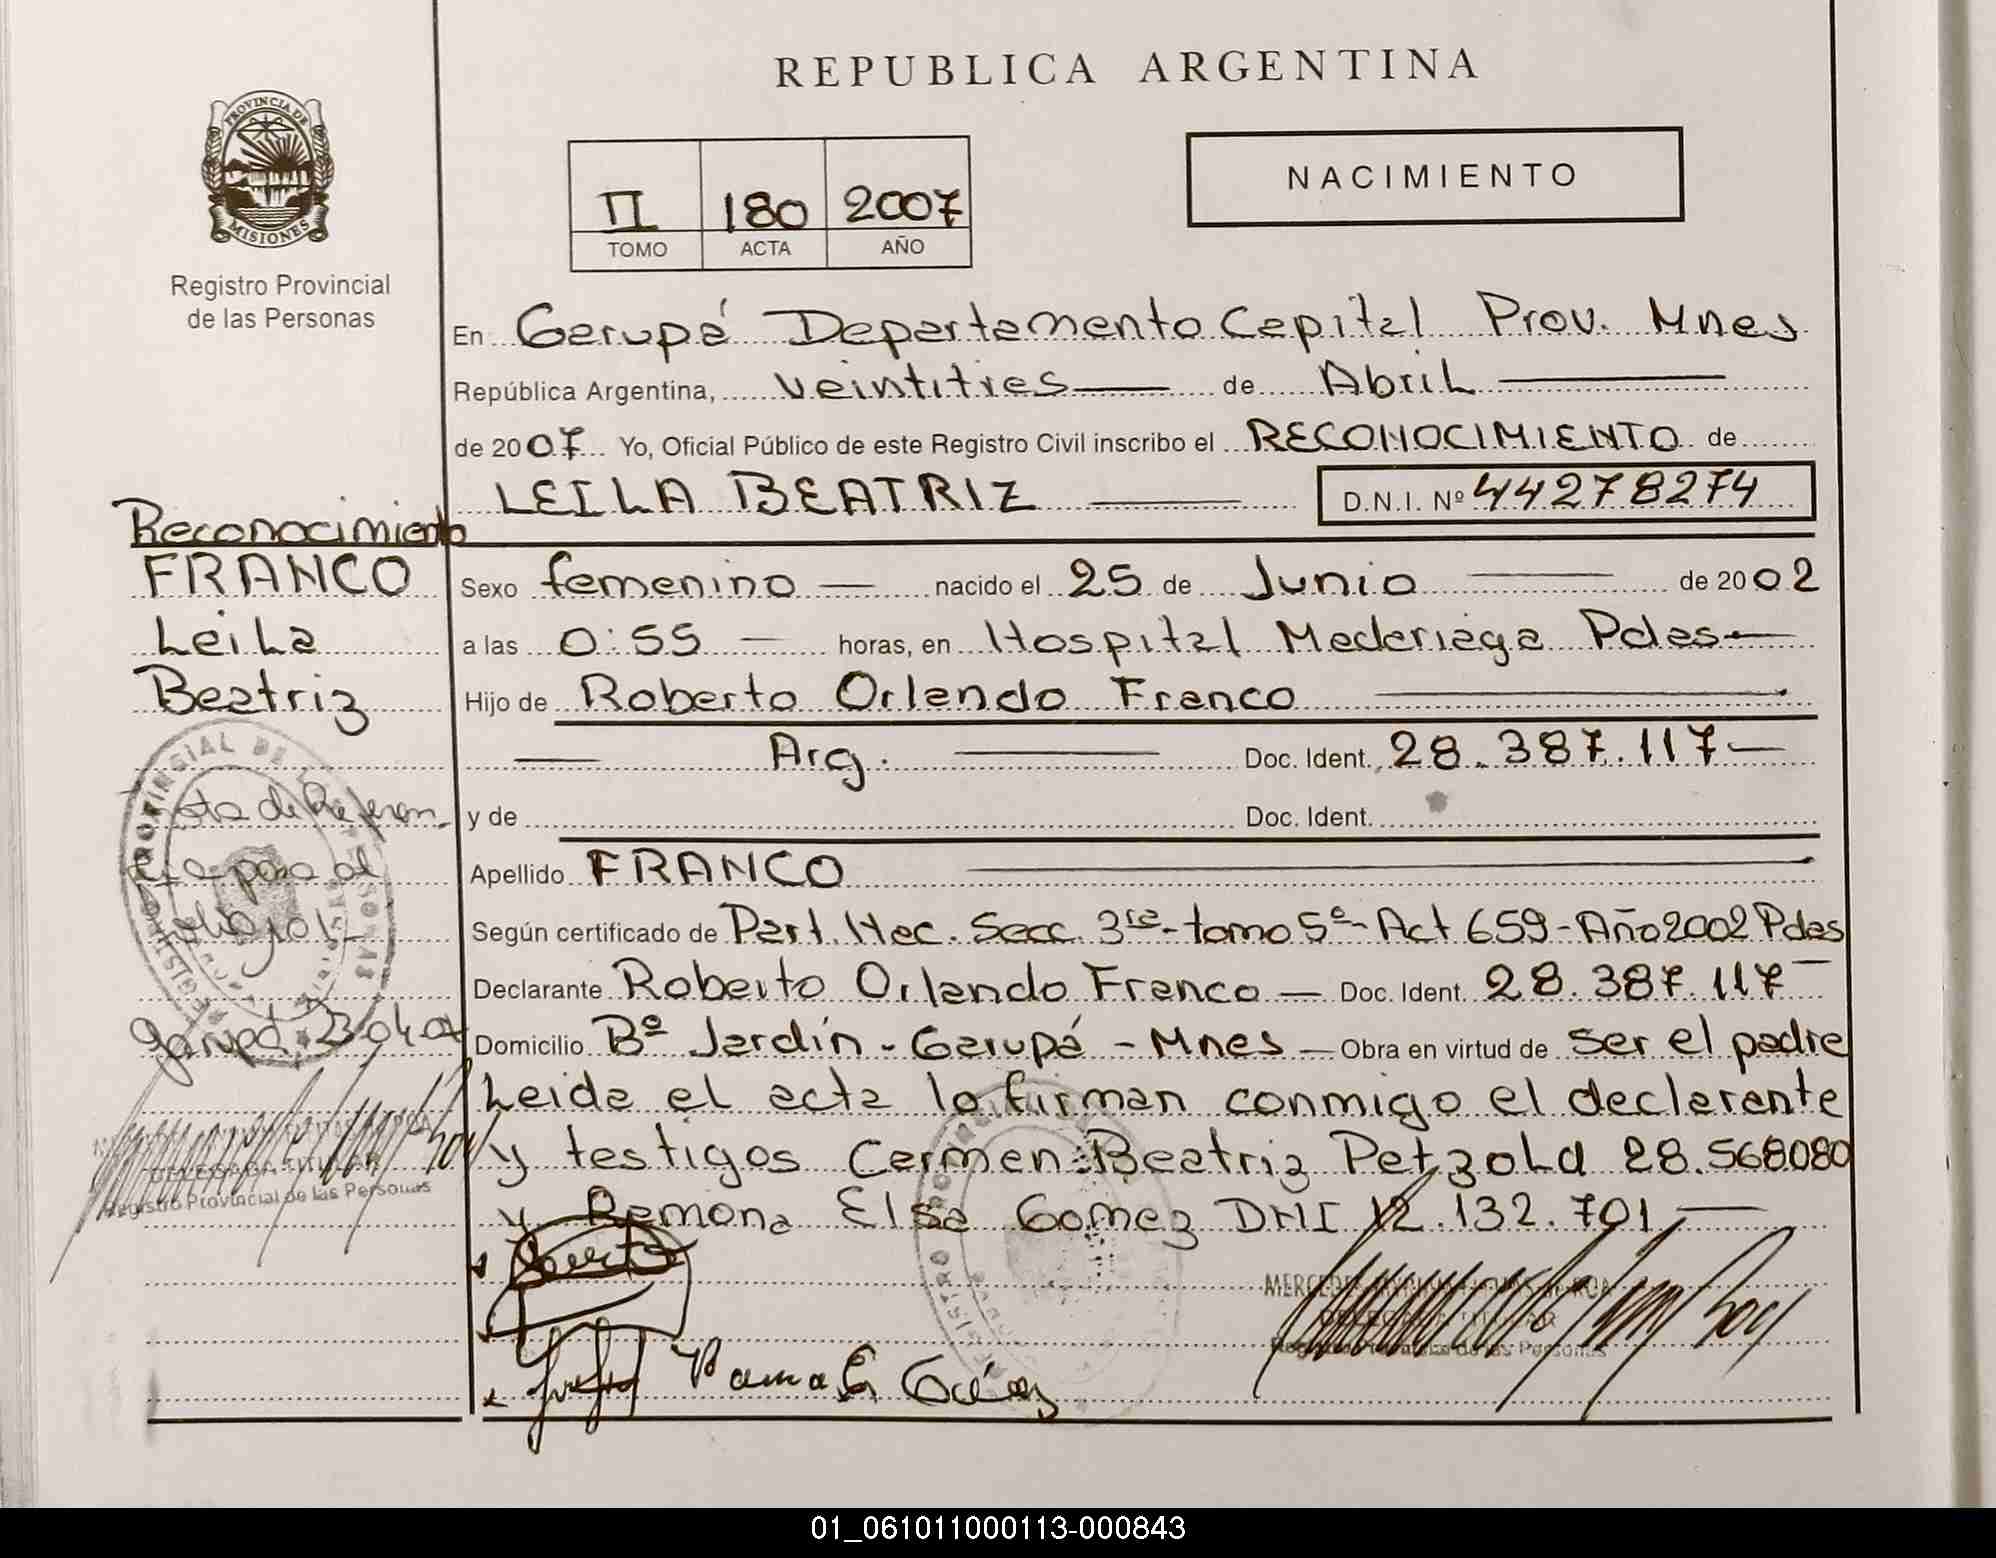 REPUBLICA ARGENTINA
PROVINCIA DE
MISIONES
Registro Provincial
de las Personas
II 180 2007
TOMO ACTA AÑO
NACIMIENTO
En Garupá Departamento Capital Prov. Mnes
República Argentina, veintitres de Abril
de 2007 Yo, Oficial Público de este Registro Civil inscribo el RECONOCIMIENTO de
LEILA BEATRIZ D.N.I. Nº 44278274
Reconocimiento
FRANCO
Leila
Beatriz
Sexo femenino nacido el 25 de Junio de 2002
a las 0:55 horas, en Hospital Madariaga Pdas
Hijo de Roberto Orlando Franco
Arg. Doc. Ident. 28.387.117
y de Doc. Ident.
Apellido FRANCO
Según certificado de Part. Nac. Secc. 3ra - tomo 5º - Act 659 - Año 2002 Pdas
Declarante Roberto Orlando Franco Doc. Ident. 28.387.117
Domicilio Bº Jardín - Garupá - Mnes Obra en virtud de ser el padre
Leida el acta la firman conmigo el declarante
y testigos Carmen Beatriz Petzold 28.568.080
y Ramona Elsa Gomez DNI 12.132.701
de Referen
para al
Garupá
DELEGADA TITULAR
Registro Provincial de las Personas
DELEGADA TITULAR
Registro Provincial de las Personas
01_061011000113-000843